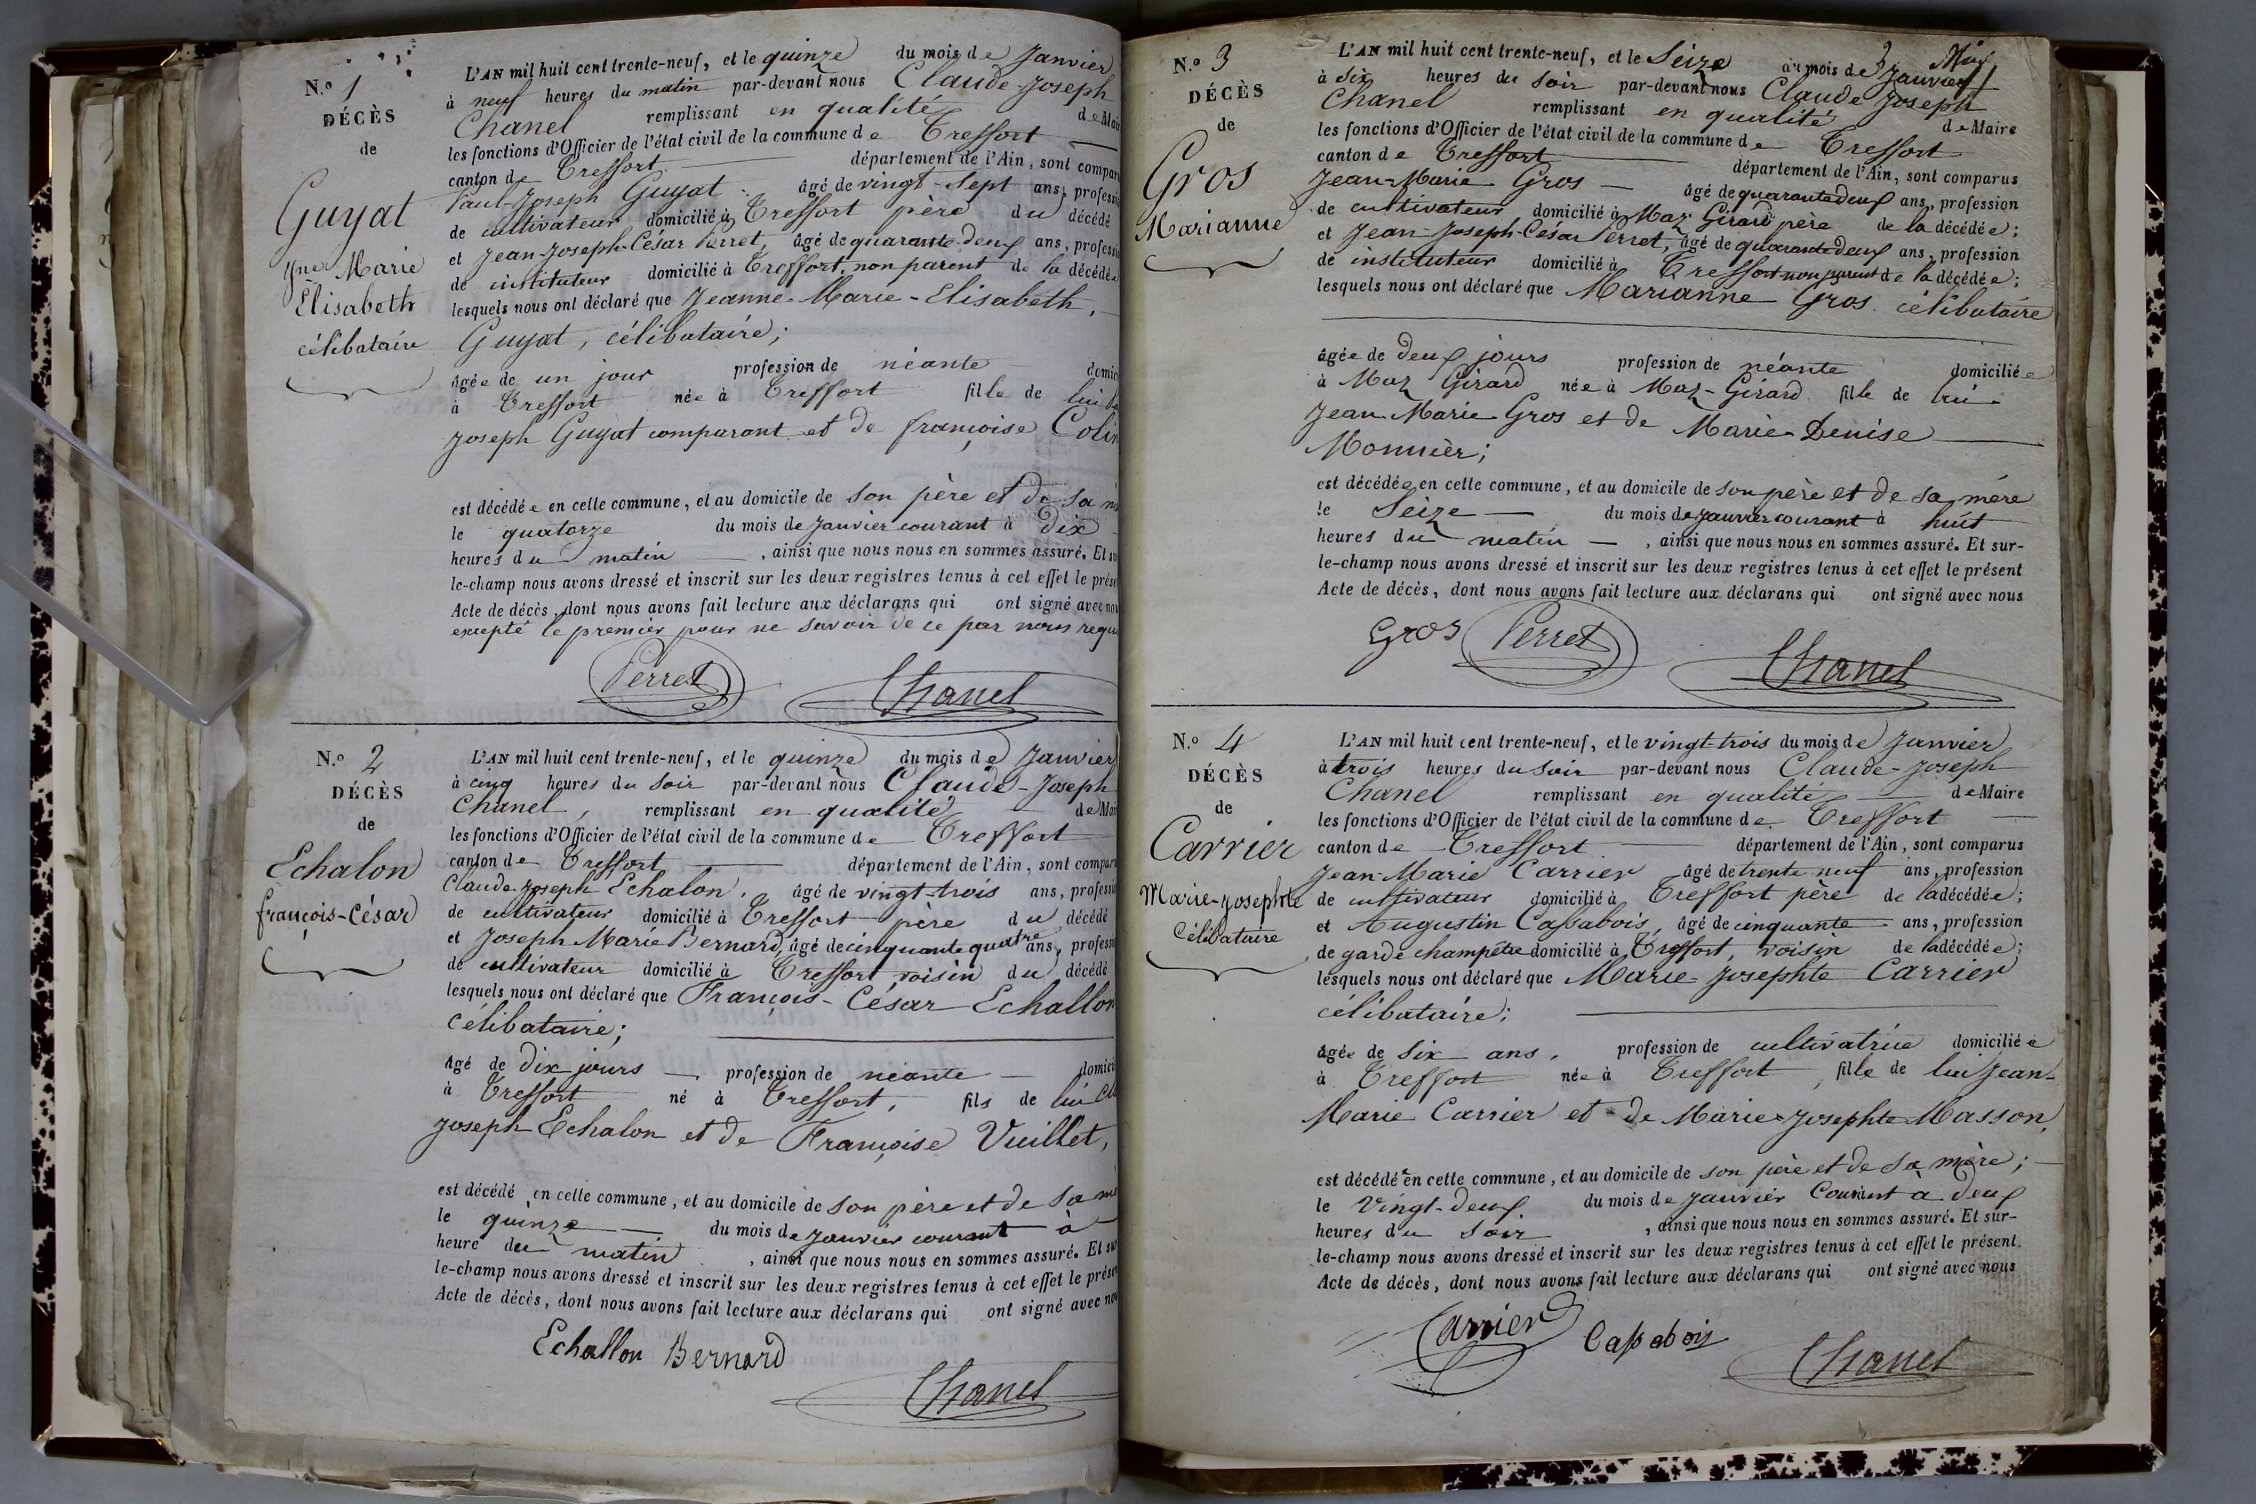 N.º 1
DÉCÈS
de
Guyat
Jne Marie
Élisabeth
célibataire
L'AN mil huit cent trente-neuf, et le quinze du mois de Janvier
à neuf heures du matin par-devant nous Claude-Joseph
Chanel remplissant en qualité de Mai
les fonctions d'Officier de l'état civil de la commune de Treffort
canton de Treffort département de l'Ain, sont compar
Paul-Joseph Guyat âgé de vingt-sept ans, professi
de cultivateur domicilié à Treffort père du décédé
et Jean-Joseph-César Perret, âgé de quarante-deux ans, professi
de instituteur domicilié à Treffort, non parent de la décédée
lesquels nous ont déclaré que Jeanne-Marie-Elisabeth,
Guyat, célibataire;
âgée de un jour profession de néante domic
à Treffort née à Treffort fille de lui
Joseph Guyat comparant et de françoise Colin
est décédée en cette commune, et au domicile de son père et de sa m
le quatorze du mois de Janvier courant à dix
heures du matin, ainsi que nous nous en sommes assuré. Et su
le-champ nous avons dressé et inscrit sur les deux registres tenus à cet effet le prése
Acte de décès, dont nous avons fait lecture aux déclarans qui ont signé avec nou
excepté le premier pour ne savoir de ce par nous requi
Perret Chanel
N.º 2
DÉCÈS
de
Echalon
françois-César
L'AN mil huit cent trente-neuf, et le quinze du mois de Janvier
à cinq heures du soir par-devant nous Claude-Joseph
Chanel, remplissant en qualité de Mai
les fonctions d'Officier de l'état civil de la commune de Treffort
canton de Treffort département de l'Ain, sont comparu
Claude-Joseph Echalon, âgé de vingt-trois ans, professi
de cultivateur domicilié à Treffort père du décédé
et Joseph Marie Bernard, âgé de cinquante quatre ans, professi
de cultivateur domicilié à Treffort voisin du décédé
lesquels nous ont déclaré que François-César Echallon
célibataire;
âgé de dix jours, profession de néante domici
à Treffort né à Treffort, fils de lui Cla
Joseph Echalon et de Françoise Vuillet,
est décédé en cette commune, et au domicile de son père et de sa m
le quinze du mois de Janvier courant à
heure du matin, ainsi que nous nous en sommes assuré. Et su
le-champ nous avons dressé et inscrit sur les deux registres tenus à cet effet le prése
Acte de décès, dont nous avons fait lecture aux déclarans qui ont signé avec nou
Echallon Bernard
Chanel
3
N.º 3
DÉCÈS
de
Gros
Marianne
L'AN mil huit cent trente-neuf, et le Seize du mois de Janvier
à six heures du soir par-devant nous Claude Joseph
Chanel remplissant en qualité de Maire
les fonctions d'Officier de l'état civil de la commune de Treffort
canton de Treffort département de l'Ain, sont comparus
Jean-Marie Gros âgé de quarante deux ans, profession
de cultivateur domicilié à Maz Girard père de la décédée;
et Jean-Joseph-César Perret, âgé de quarante deux ans, profession
de instituteur domicilié à Treffort non parent de la décédée;
lesquels nous ont déclaré que Marianne Gros célibataire
âgée de deux jours profession de néante domiciliée
à Maz Girard née à Maz-Girard fille de lui
Jean-Marie Gros et de Marie-Denise
Monnier;
est décédée en cette commune, et au domicile de son père et de sa mère
le Seize du mois de Janvier courant à huit
heures du matin, ainsi que nous nous en sommes assuré. Et sur-
le-champ nous avons dressé et inscrit sur les deux registres tenus à cet effet le présent
Acte de décès, dont nous avons fait lecture aux déclarans qui ont signé avec nous
Gros Perret Chanel
N.º 4
DÉCÈS
de
Carrier
Marie-Josephte
Célibataire
L'AN mil huit cent trente-neuf, et le vingt-trois du mois de Janvier
à trois heures du soir par-devant nous Claude-Joseph
Chanel remplissant en qualité de Maire
les fonctions d'Officier de l'état civil de la commune de Treffort
canton de Treffort département de l'Ain, sont comparus
Jean-Marie Carrier âgé de trente neuf ans, profession
de cultivateur domicilié à Treffort père de la décédée;
et Augustin Cassabois, âgé de cinquante ans, profession
de garde champêtre domicilié à Treffort, voisin de la décédée;
lesquels nous ont déclaré que Marie-Josephte Carrier
célibataire;
âgée de Six ans, profession de cultivatrice domiciliée
à Treffort née à Treffort, fille de lui Jean-
Marie Carrier et de Marie-Josephte Masson,
est décédée en cette commune, et au domicile de son père et de sa mère;
le Vingt-deux du mois de Janvier Courant à deux
heures du soir, ainsi que nous nous en sommes assuré. Et sur-
le-champ nous avons dressé et inscrit sur les deux registres tenus à cet effet le présent
Acte de décès, dont nous avons fait lecture aux déclarans qui ont signé avec nous
Carrier Cassabois Chanel